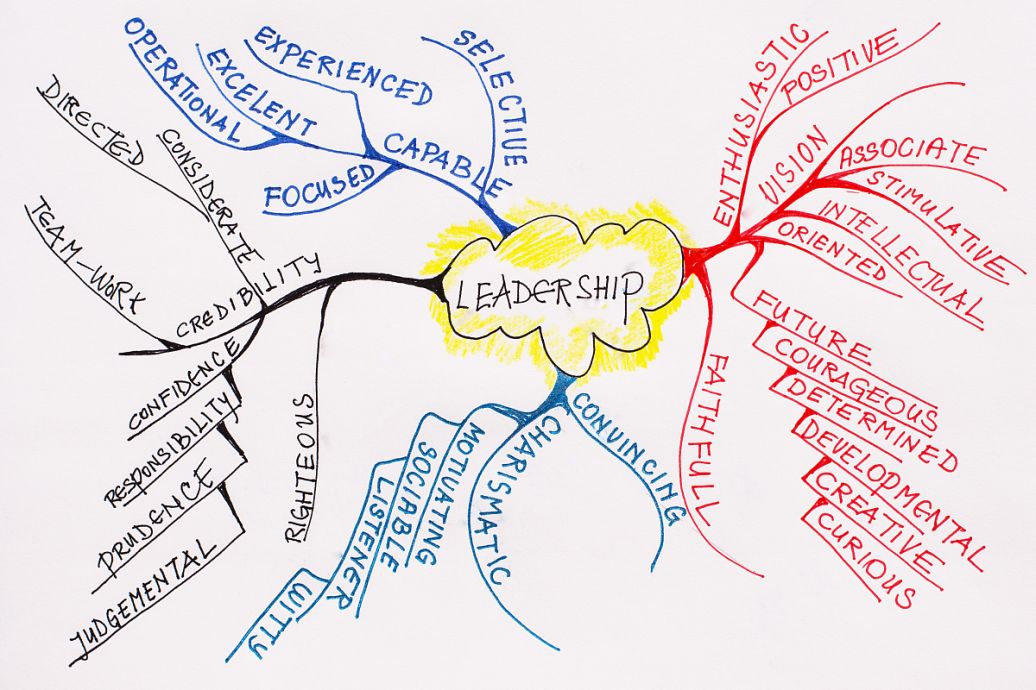 LEADERSHIP
SELECTIVE
CAPABLE
EXPERIENCED
EXCELENT
OPERATIONAL
FOCUSED
ENTHUSIASTIC
POSITIVE
VISION
ASSOCIATE
STIMULATIVE
INTELLECTUAL
ORIENTED
FUTURE
COURAGEOUS
DETERMINED
DEVELOPMENTAL
CREATIVE
CURIOUS
FAITHFULL
CONVINCING
CHARISMATIC
MOTIVATING
SOCIABLE
LISTENER
WITTY
RIGHTEOUS
CREDIBILITY
CONSIDERATE
DIRECTED
TEAM_WORK
CONFIDENCE
RESPONSIBILITY
PRUDENCE
JUDGEMENTAL